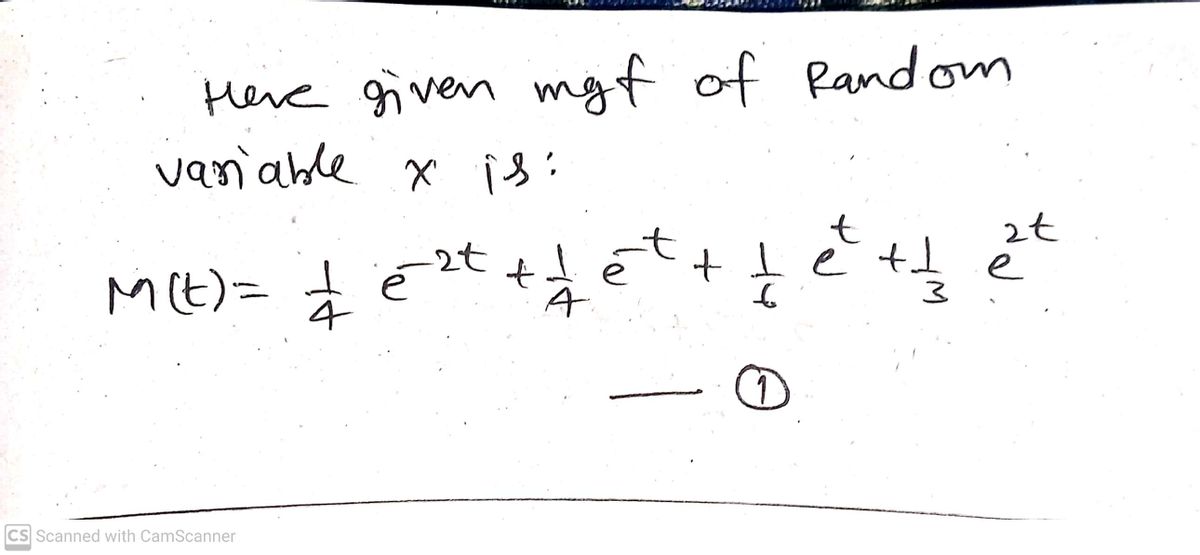 Here given mgf of Random
variable x is:
M(t) = 1/4 e^-2t + 1/4 e^-t + 1/6 e^t + 1/3 e^2t
— ①
CS Scanned with CamScanner